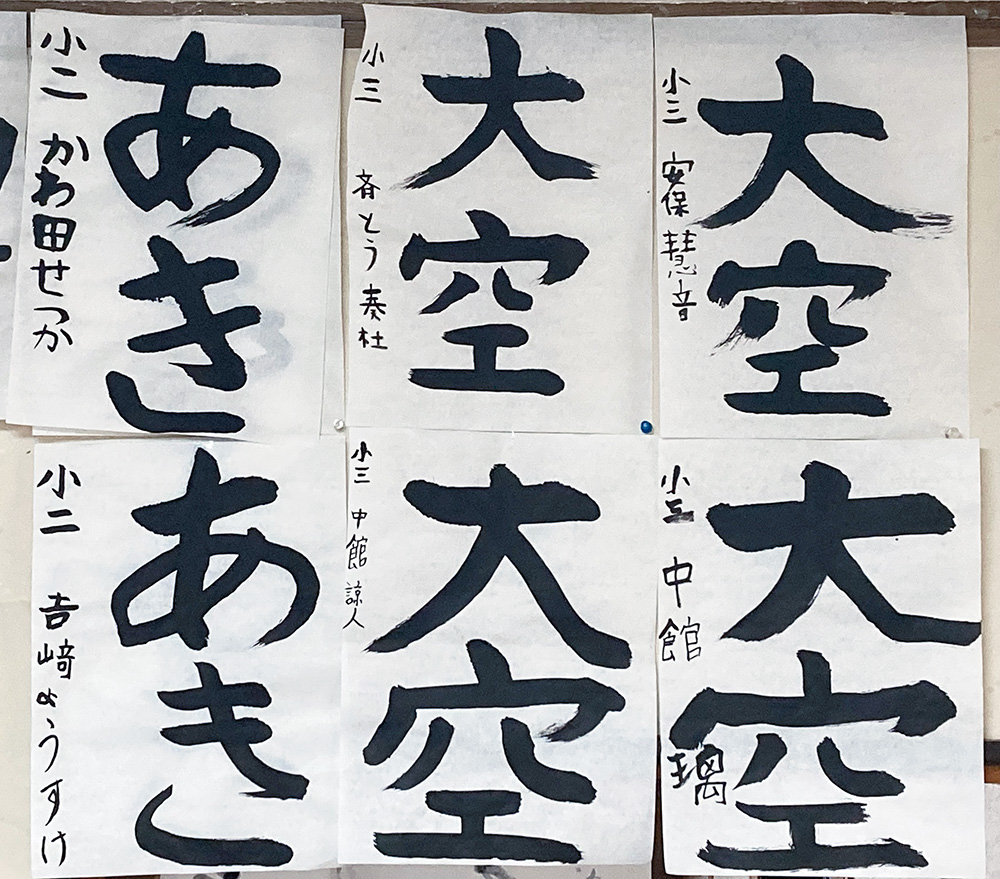 あき
小二 かわ田せつか
大空
小三 斉とう奏杜
大空
小三 安保慧音
あき
小二 吉﨑ようすけ
大空
小三 中館諒人
大空
小三 中館璃